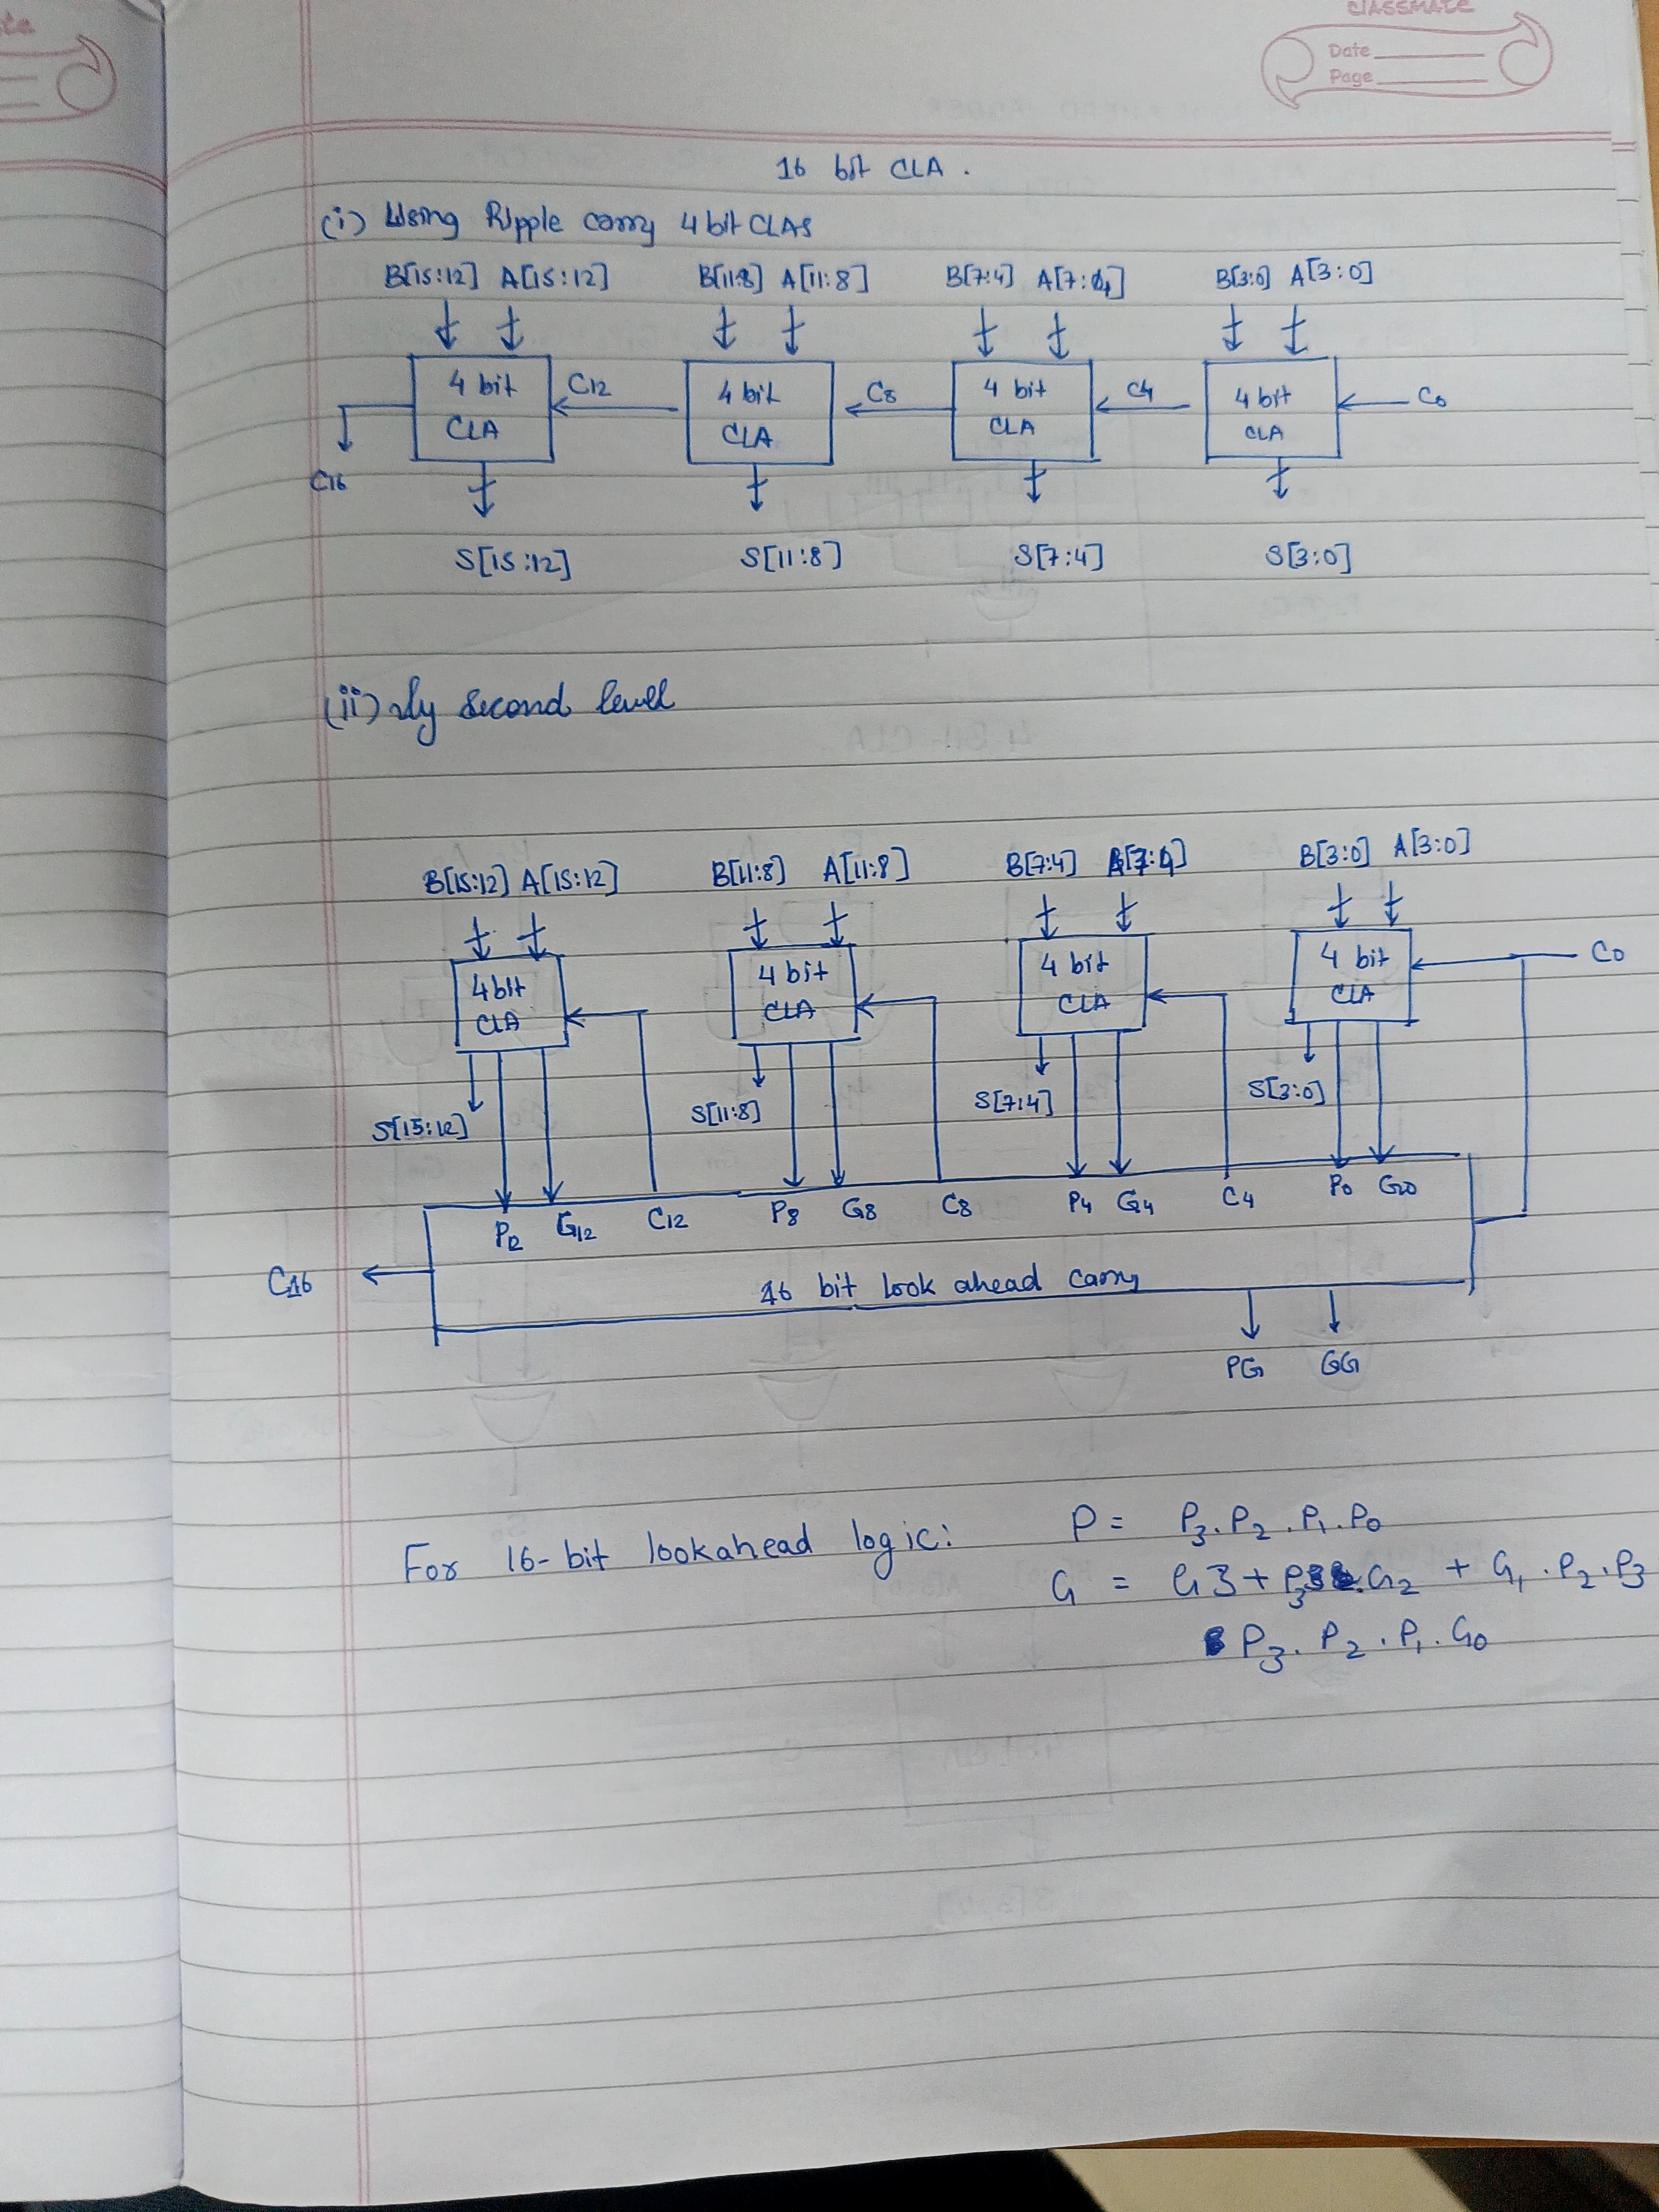 classmate
Date
Page
16 bit CLA.
(i) Using Ripple carry 4 bit CLAS
B[15:12] A[15:12] B[11:8] A[11:8] B[7:4] A[7:4] B[3:0] A[3:0]
4 bit CLA C12 4 bit CLA C8 4 bit CLA C4 4 bit CLA C0
C16
S[15:12] S[11:8] S[7:4] S[3:0]
(ii) second level
B[15:12] A[15:12] B[11:8] A[11:8] B[7:4] A[7:4] B[3:0] A[3:0]
4 bit CLA 4 bit CLA 4 bit CLA 4 bit CLA C0
S[15:12] S[11:8] S[7:4] S[3:0]
P12 G12 C12 P8 G8 C8 P4 G4 C4 P0 G0
C16 16 bit look ahead carry
PG GG
For 16-bit lookahead logic: P = P3.P2.P1.P0
G = G3 + P3.G2 + G1.P2.P3
P3.P2.P1.G0